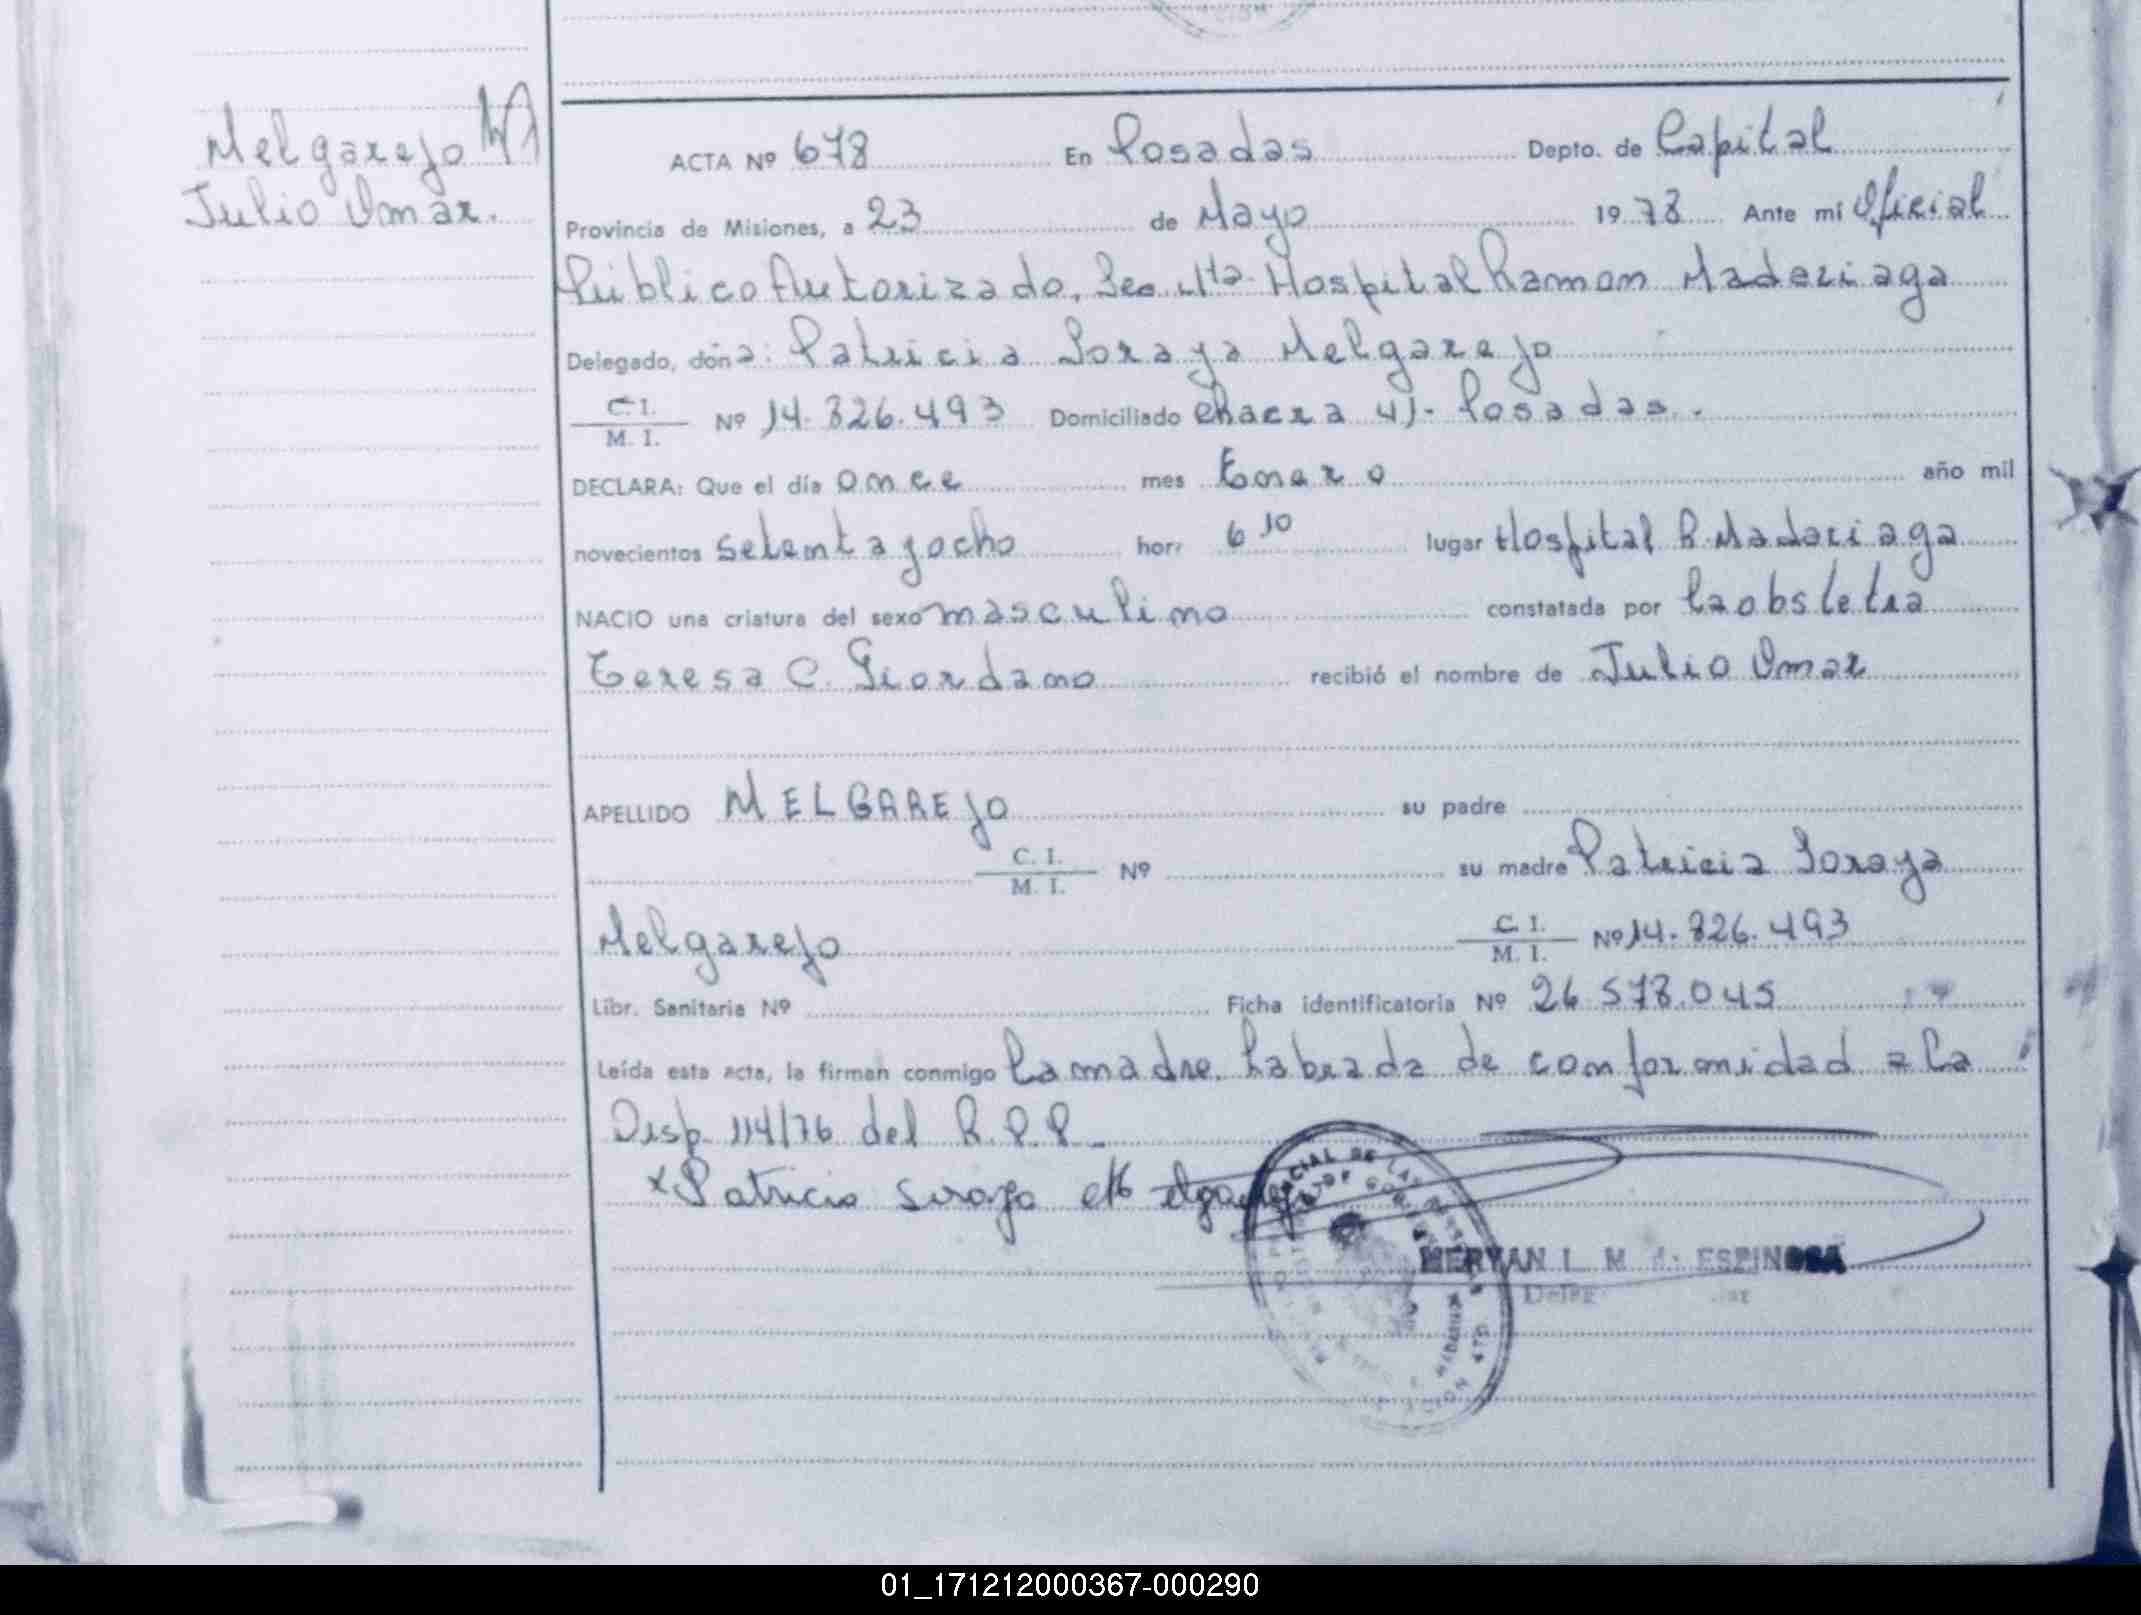 Melgarejo
Julio Omar.
ACTA Nº 678 En Posadas Depto. de Capital
Provincia de Misiones, a 23 de Mayo 1978 Ante mí Oficial
Público Autorizado, Hospital Ramon Maderiaga
Delegado, don a: Patricia Soraya Melgarejo
C. I.
M. I. Nº 14.826.493 Domiciliado chacra 41- Posadas.
DECLARA: Que el día once mes Enero año mil
novecientos setenta y ocho hora 6 10 lugar Hospital R. Madariaga
NACIO una criatura del sexo masculino constatada por la obstetra
Teresa C. Giordano recibió el nombre de Julio Omar
APELLIDO MELGAREJO su padre
C. I.
M. I. Nº su madre Patricia Soraya
Melgarejo C. I.
M. I. Nº 14.826.493
Libr. Sanitaria Nº Ficha identificatoria Nº 26.578.045
Leída esta acta, la firman conmigo la madre. Labrada de conformidad a la
Disp. 114/76 del R.P.P.-
x Patricia Soraya Melgarejo
ESPINOSA
01_171212000367-000290